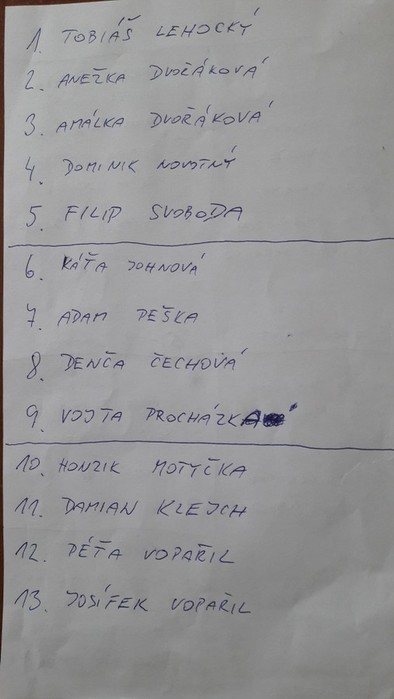 1. TOBIÁŠ LEHOCKÝ
2. ANEŽKA DVOŘÁKOVÁ
3. AMÁLKA DVOŘÁKOVÁ
4. DOMINIK NOVOTNÝ
5. FILIP SVOBODA
6. KÁŤA JOHNOVÁ
7. ADAM PEŠKA
8. DENČA ČECHOVÁ
9. VOJTA PROCHÁZKA
10. HONZIK MOTYČKA
11. DAMIAN KLEJCH
12. PÉŤA VOPAŘIL
13. JOSÍFEK VOPAŘIL